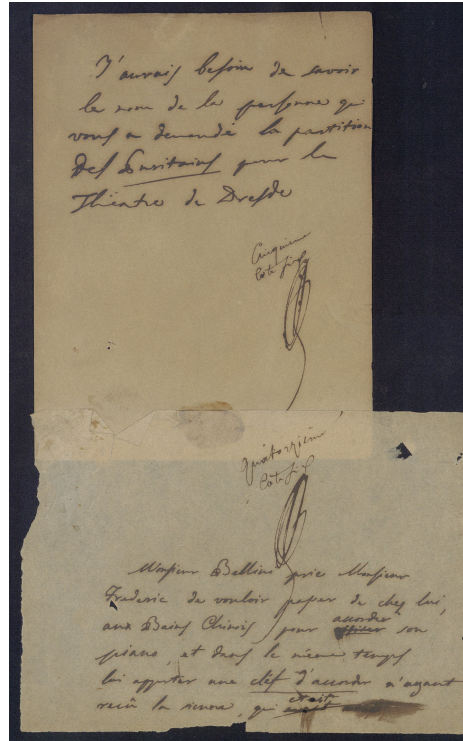 J'aurais besoin de savoir
le nom de la personne qui
vous a demandé la partition
Des Puritains pour le
Théatre de Dresde
Cinquieme
Côte
Quatorzieme
Côte
Monsieur Bellini prie Monsieur
Frederic de vouloir passer de chez lui,
aux Bains Chinois pour accorder son
piano, et dans le même temps
lui apporter une clef d'accorder n'ayant
reçû la sienne, qui etait